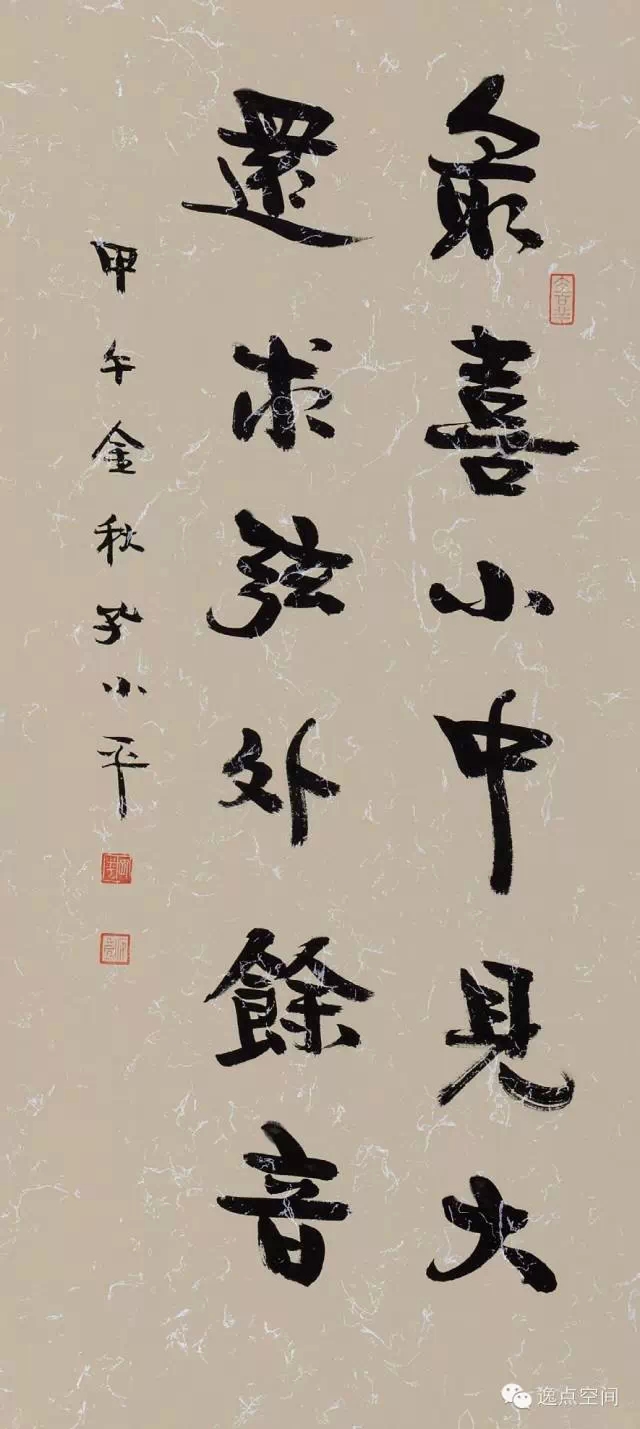 最喜小中見大
還求弦外餘音
甲午金秋孔小平
逸点空间